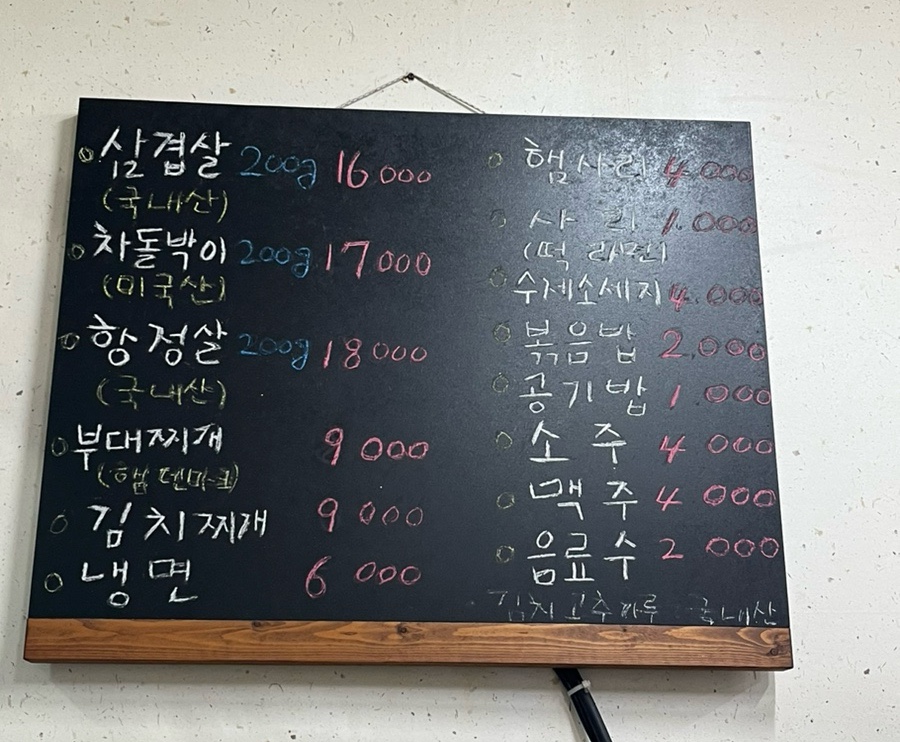 삼겹살 200g 16000
(국내산)
차돌박이 200g 17000
(미국산)
항정살 200g 18000
(국내산)
부대찌개 9000
(햄 덴마크)
김치찌개 9000
냉면 6000
햄사리 4.000
사리 1.000
(떡 라면)
수제소세지 4.000
볶음밥 2.000
공기밥 1.000
소주 4000
맥주 4000
음료수 2000
김치 고추가루 국내산